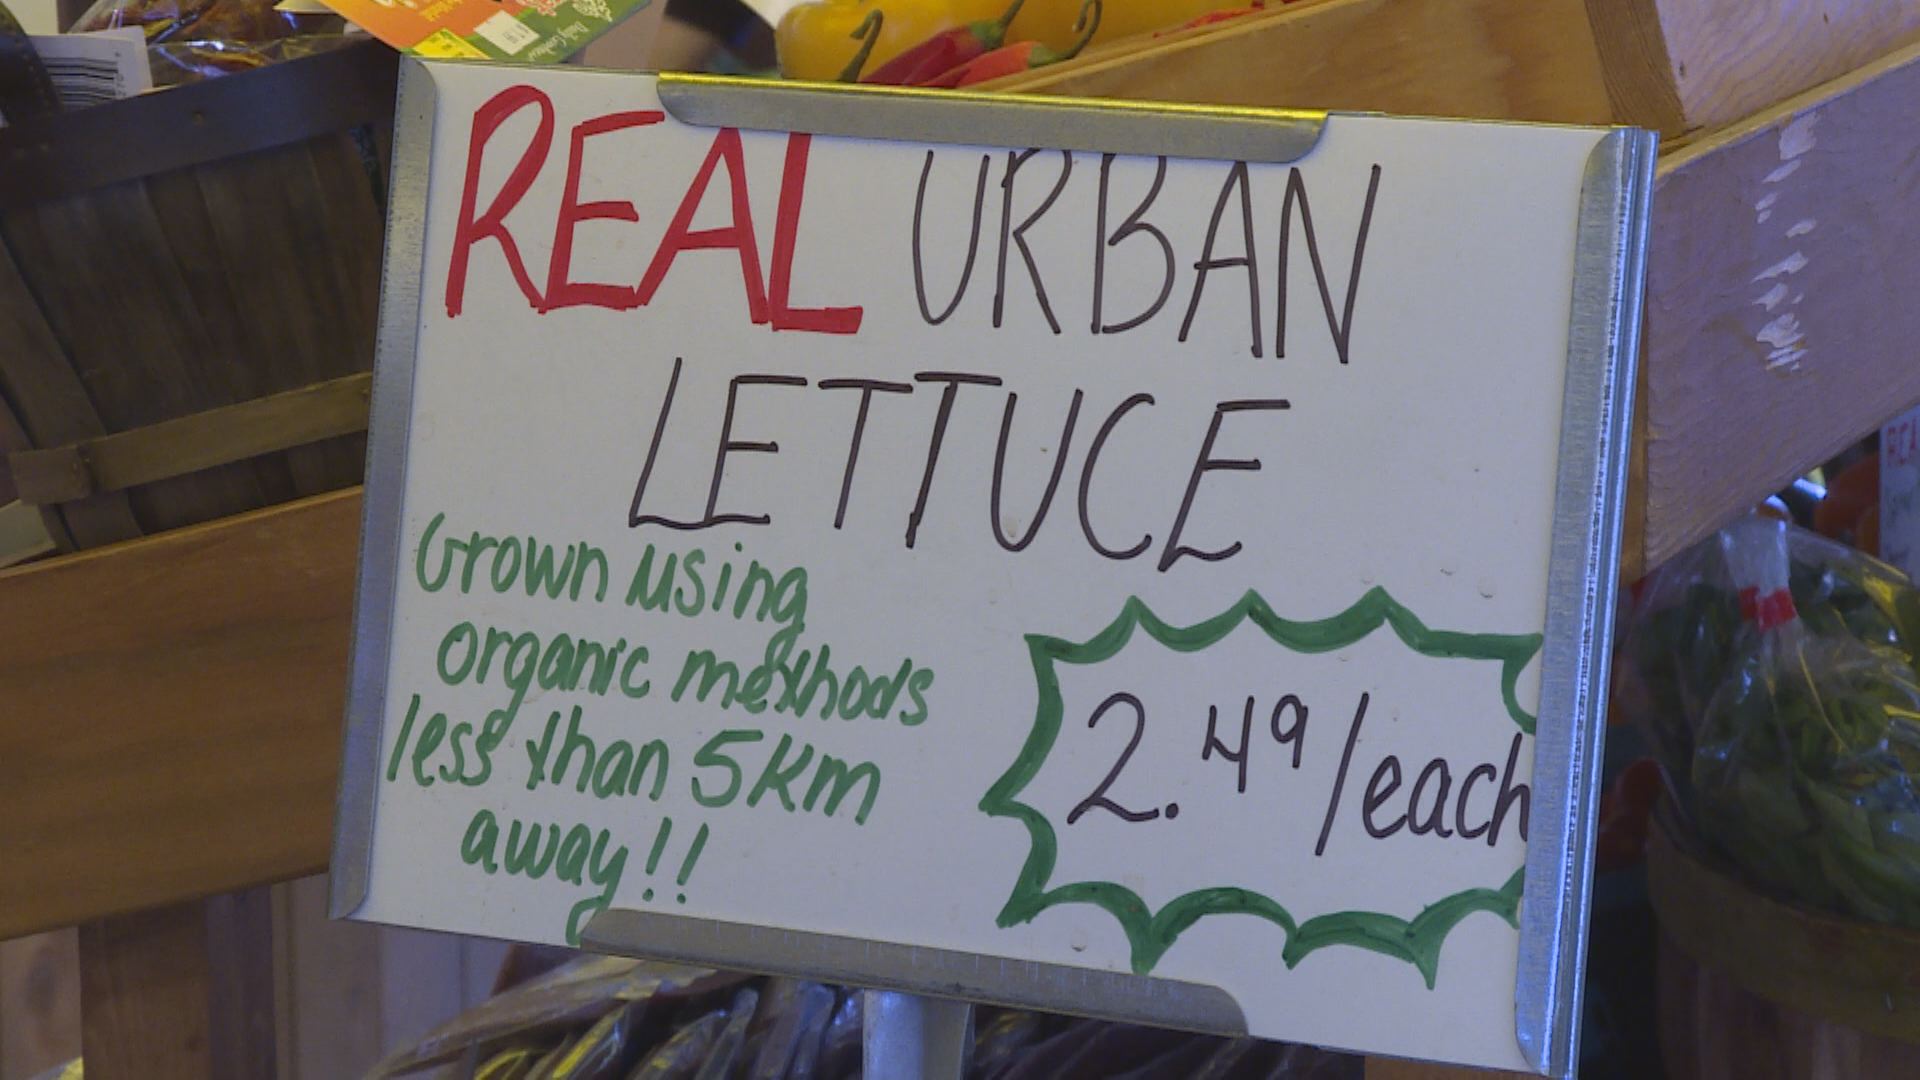 REAL URBAN
LETTUCE
Grown using
organic methods
less than 5km
away!!
2.49/each